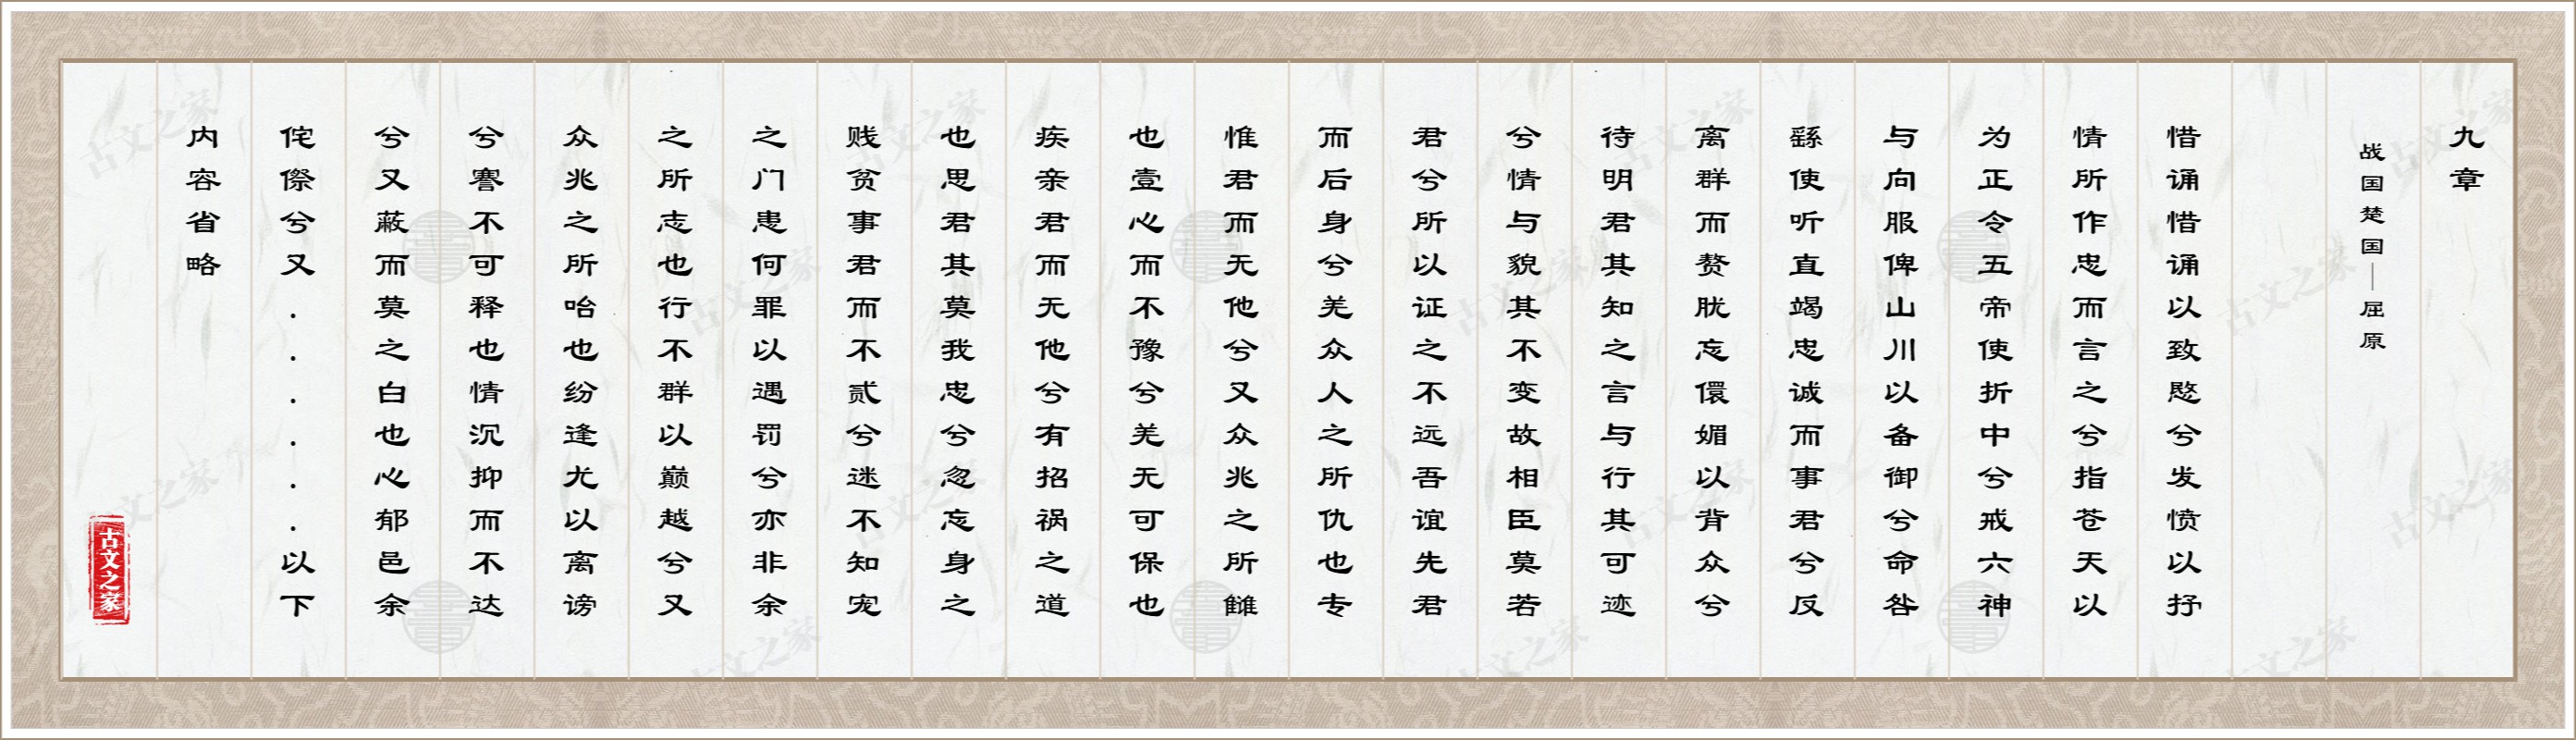 九章
战国楚国—屈原
惜诵惜诵以致愍兮发愤以抒
情所作忠而言之兮指苍天以
为正令五帝使折中兮戒六神
与向服俾山川以备御兮命咎
繇使听直竭忠诚而事君兮反
离群而赘肬忘儇媚以背众兮
待明君其知之言与行其可迹
兮情与貌其不变故相臣莫若
君兮所以证之不远吾谊先君
而后身兮羌众人之所仇也专
惟君而无他兮又众兆之所雠
也壹心而不豫兮羌无可保也
疾亲君而无他兮有招祸之道
也思君其莫我忠兮忽忘身之
贱贫事君而不贰兮迷不知宠
之门患何罪以遇罚兮亦非余
之所志也行不群以巅越兮又
众兆之所咍也纷逢尤以离谤
兮謇不可释也情沉抑而不达
兮又蔽而莫之白也心郁邑余
侘傺兮又......以下
内容省略
古文之家